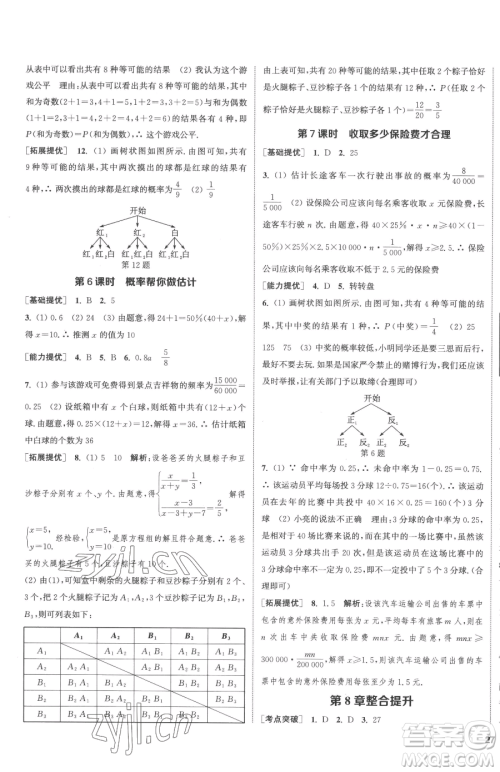 从表中可以看出共有 8 种等可能的结果 (2) 我认为这个游
戏公平 理由:从表中可以看出共有 8 种等可能的结果,其中
和为奇数(2+1=3,4+1=5,2+3=5,4+3=7)与和为偶数
(1+1=2,3+1=4,1+3=4,3+3=6)的结果均有 4 种
[拓展提优] 12. (1) 画树状图如图所示.由图可知,共有
9 种等可能的结果 (2) 其中两次摸出的球都是红球的结果
有 4 种,∴ 两次摸出的球都是红球的概率为 4/9
开始
红₁ 红₂ 白
红₁红₂白 红₁红₂白 红₁红₂白
第12题
第 6 课时 概率帮你做估计
[基础提优] 1. B 2. 5
3. (1) 0.6 (2) 24 (3) 由题意,得 24+x=50%(24+6+x),解得
x=10.∴ 推测 x 的值为 10
[能力提优] 4. B 5. B 6. 0.8a 5/8
7. (1) 参与该游戏可免费得到景点吉祥物的频率为 15 000/60 000=
0.25 (2) 设纸箱中有 x 个白球,则 0.25(12+x)=12,解得
x=36,经检验,x=36 是方程的解且符合题意.∴ 估计纸箱
中白球的个数为 36
[拓展提优] 8. (1) 5 10 解析:设爸爸买的火腿粽子和豆
沙粽子分别有 x 个、y 个,根据题意,得
x=5, y=10. 经检验, x=5, y=10 是方程组的解且符合题意.∴ 爸爸
买的火腿粽子有 5 个,豆沙粽子有 10 个.
(2) 由(1)可知,盒中剩余的火腿粽子和豆沙粽子分别有 2 个、
3 个,我们不妨把 2 个火腿粽子记为 A₁、A₂,3 个豆沙粽子
记为 B₁、B₂、B₃,则可列表如下:
A₁ A₂ B₁ B₂ B₃
A₁ A₁A₂ A₁B₁ A₁B₂ A₁B₃
A₂ A₂A₁ A₂B₁ A₂B₂ A₂B₃
B₁ B₁A₁ B₁A₂ B₁B₂ B₁B₃
B₂ B₂A₁ B₂A₂ B₂B₁ B₂B₃
B₃ B₃A₁ B₃A₂ B₃B₁ B₃B₂
由上表可知,共有 20 种等可能的结果,其中 2 个粽子恰好是
火腿粽子、豆沙粽子各 1 个的结果有 12 种,∴ P(任取 2 个
粽子恰好是火腿粽子、豆沙粽子各 1 个)=12/20=3/5
第 7 课时 收取多少保险费才合理
[基础提优] 1. D 2. 25
3. (1) 估计长途客车一次行驶出事故的概率是 8/40 000=
1/5 000 (2) 设保险公司应该向每个乘客收取 x 元保险费,长
途客车行驶 n 次.由题意,得 40×25%·x·n≥
40×25%×50 000·1/5 000·n,解得 x≥2.5.∴ 保险公司应
该向每个乘客收取不少于 2.5 元的保险费
[能力提优] 4. D 5. 转转盘
6. (1) 画树状图如图所示.由图可知,共有 4 种等可能的结
果,其中中奖的结果有 1 种,∴ P(中奖)=1/4 (2) 由题意,得
125 75 (3) 中奖的概率较低,小明同学还是要三思而后行,
不要贪图小便宜,如果是国家严令禁止的赌博行为,我们还应该
及时举报,让有关部门予以打击(合理即可)
开始
正₁ 反₁
正₂ 反₂ 正₂ 反₂
第6题
7. (1) ∵ 命中率为 0.25,∴ 未命中率为 1-0.25=0.75.
∴ 该运动员平均每场投篮 12÷0.75=16(次).∴ 该运动
员在去年的比赛中共投中 40×16×0.25=160(个)3 分球
(2) 小亮的说法不正确 理由:3 分球的命中率为 0.25,是
指该运动员在去年 40 场比赛中的平均水平,而在其中的一
场比赛中,虽然该运动员 3 分球共出手 20 次,但是该运动员
这场比赛中不一定投中了 5 个 3 分球.(合理即可)
[拓展提优] 8. 1.5 解析:设该汽车运输公司出售的车票
中的意外伤害保险费为 m 元,每车有 a 个旅客.由题意,得
在 n 次出车中共收取保险费 amn 元,∴ amn≥
300 000·mn/200 000,解得 m≥1.5.∴ 该汽车运输公司出售的车
票中的意外伤害保险费至少为 1.5 元.
第 8 章整合提升
[考点突破] 1. D 2. D 3. 27
27
zyjl.cn